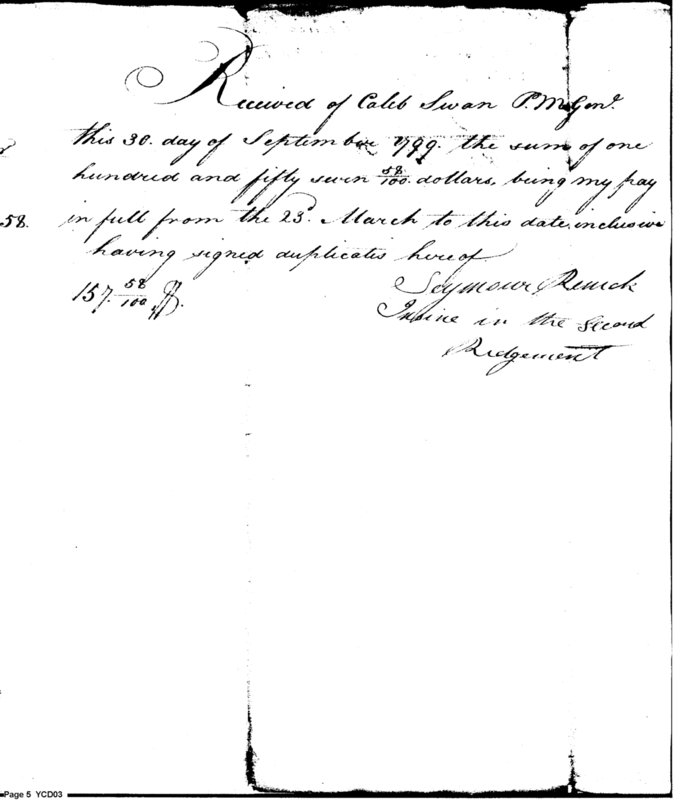 Received of Caleb Swan P.M.Genl.
this 30. day of September 1799. the sum of one
hundred and fifty seven 58/100 dollars, being my pay
58. in full from the 23d. March to this date, inclusive
having signed duplicates hereof
157. 58/100
Seymour Renick
Insine in the Second
Ridgement
Page 5 YCD03